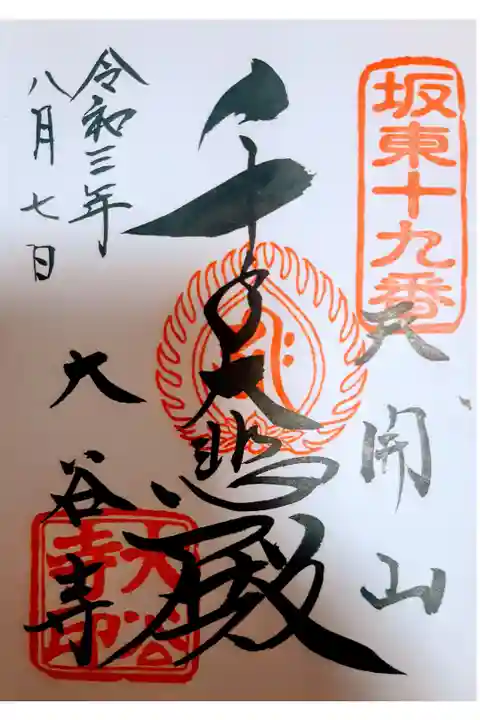 坂東十九番
天開山
千手大悲殿
令和三年
八月七日
大谷寺
大谷寺印